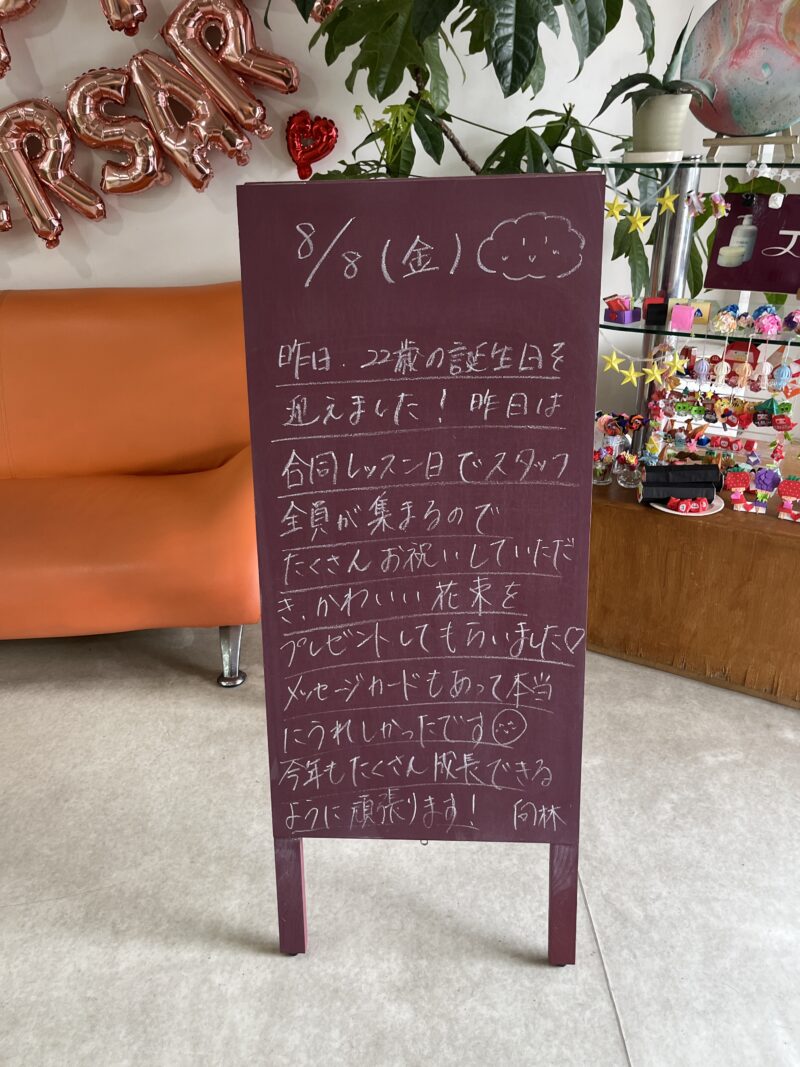 RSAR
8/8(金)
昨日、22歳の誕生日を
迎えました！昨日は
合同レッスン日でスタッフ
全員が集まるので
たくさんお祝いしていただ
き、かわいい花束を
プレゼントしてもらいました♡
メッセージカードもあって本当
にうれしかったです
今年もたくさん成長できる
ように頑張ります！ 向林